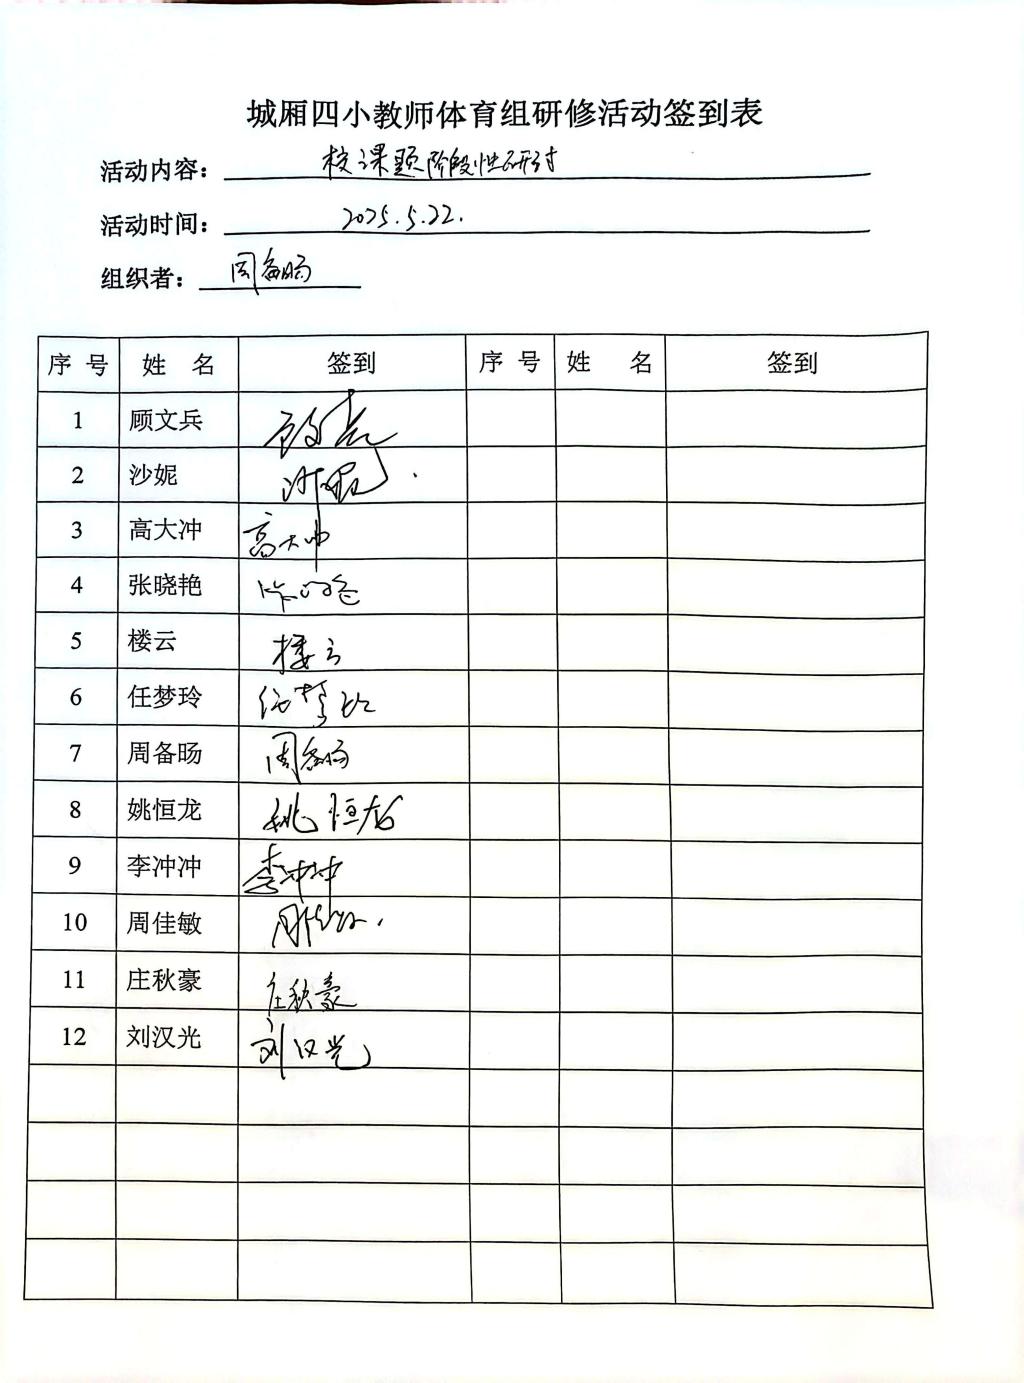 城厢四小教师体育组研修活动签到表
活动内容： 校课题阶段性研讨
活动时间： 2025.5.22.
组织者： 周备旸
序 号 姓 名 签到 序 号 姓 名 签到
1 顾文兵 顾文兵
2 沙妮 沙妮
3 高大冲 高大冲
4 张晓艳
5 楼云 楼云
6 任梦玲 任梦玲
7 周备旸 周备旸
8 姚恒龙 姚恒龙
9 李冲冲 李冲冲
10 周佳敏 周佳敏
11 庄秋豪 庄秋豪
12 刘汉光 刘汉光